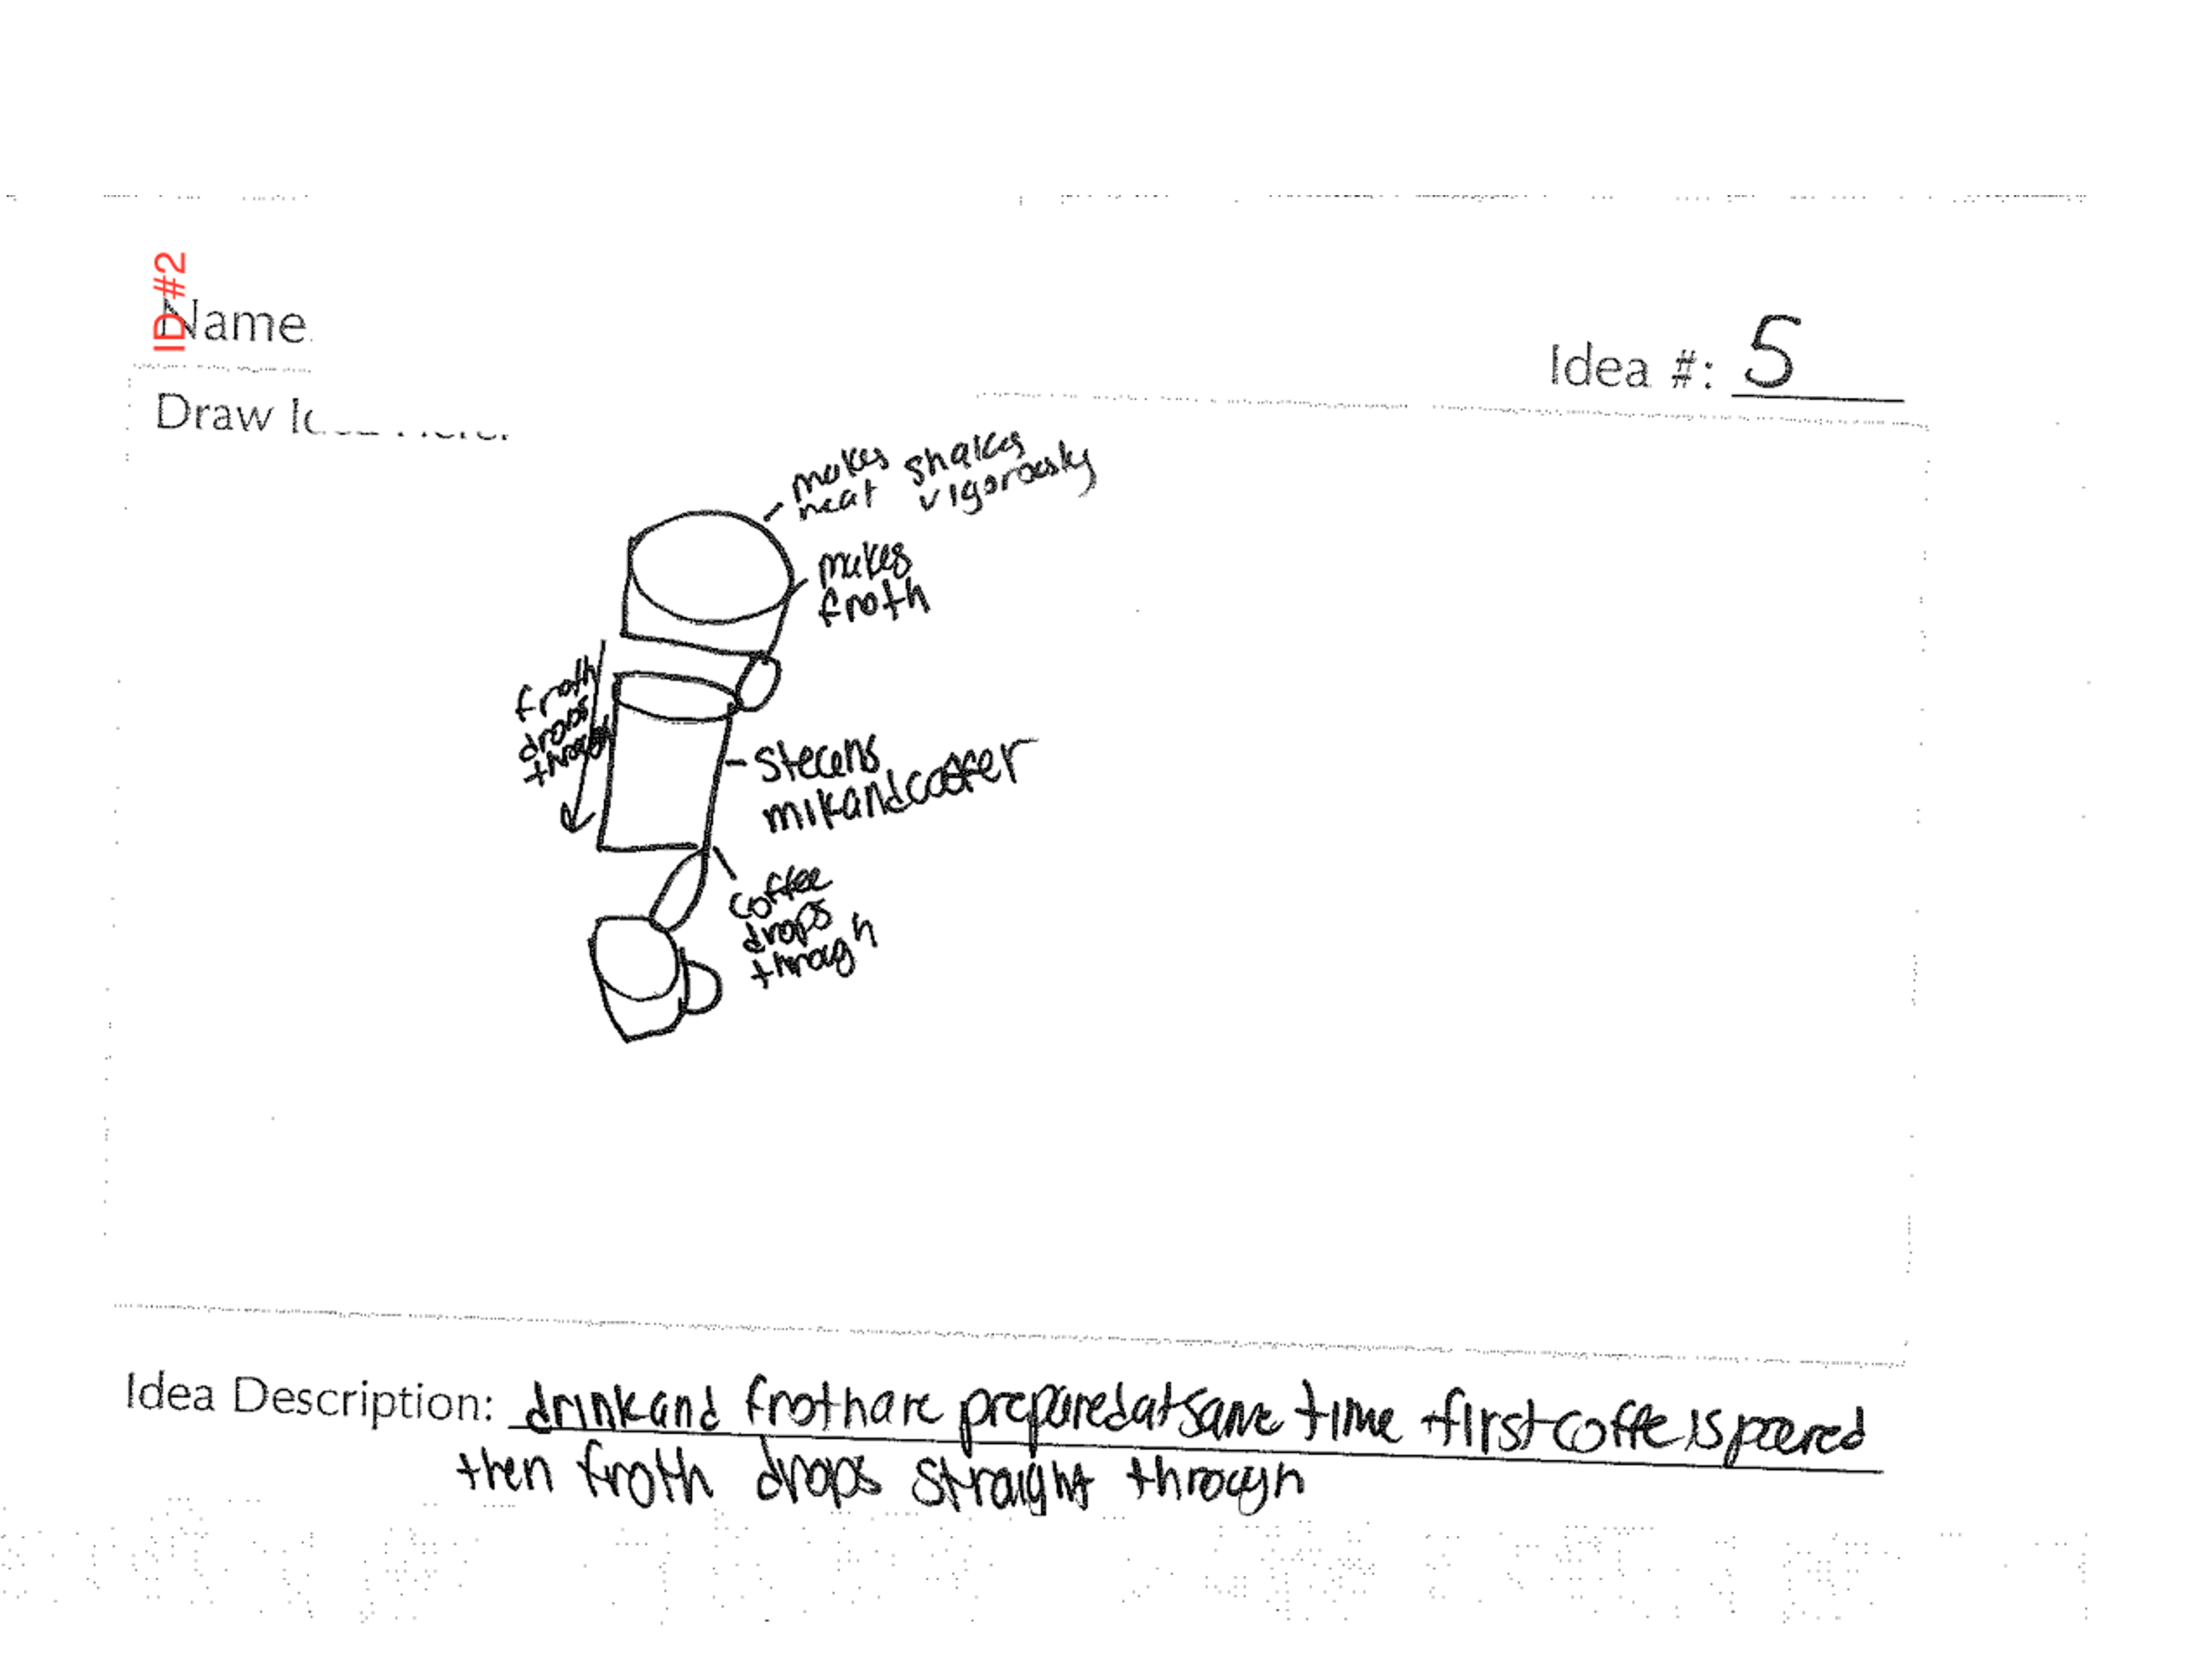 ID #2
Name
Idea #: 5
Draw
makes shakes
heat vigorously
makes
froth
froth
drops
through
stecens
milkandcoffer
coffee
drops
throagh
Idea Description: drinkand frothare preparedatsame time first coffe is poered
then froth drops straight through